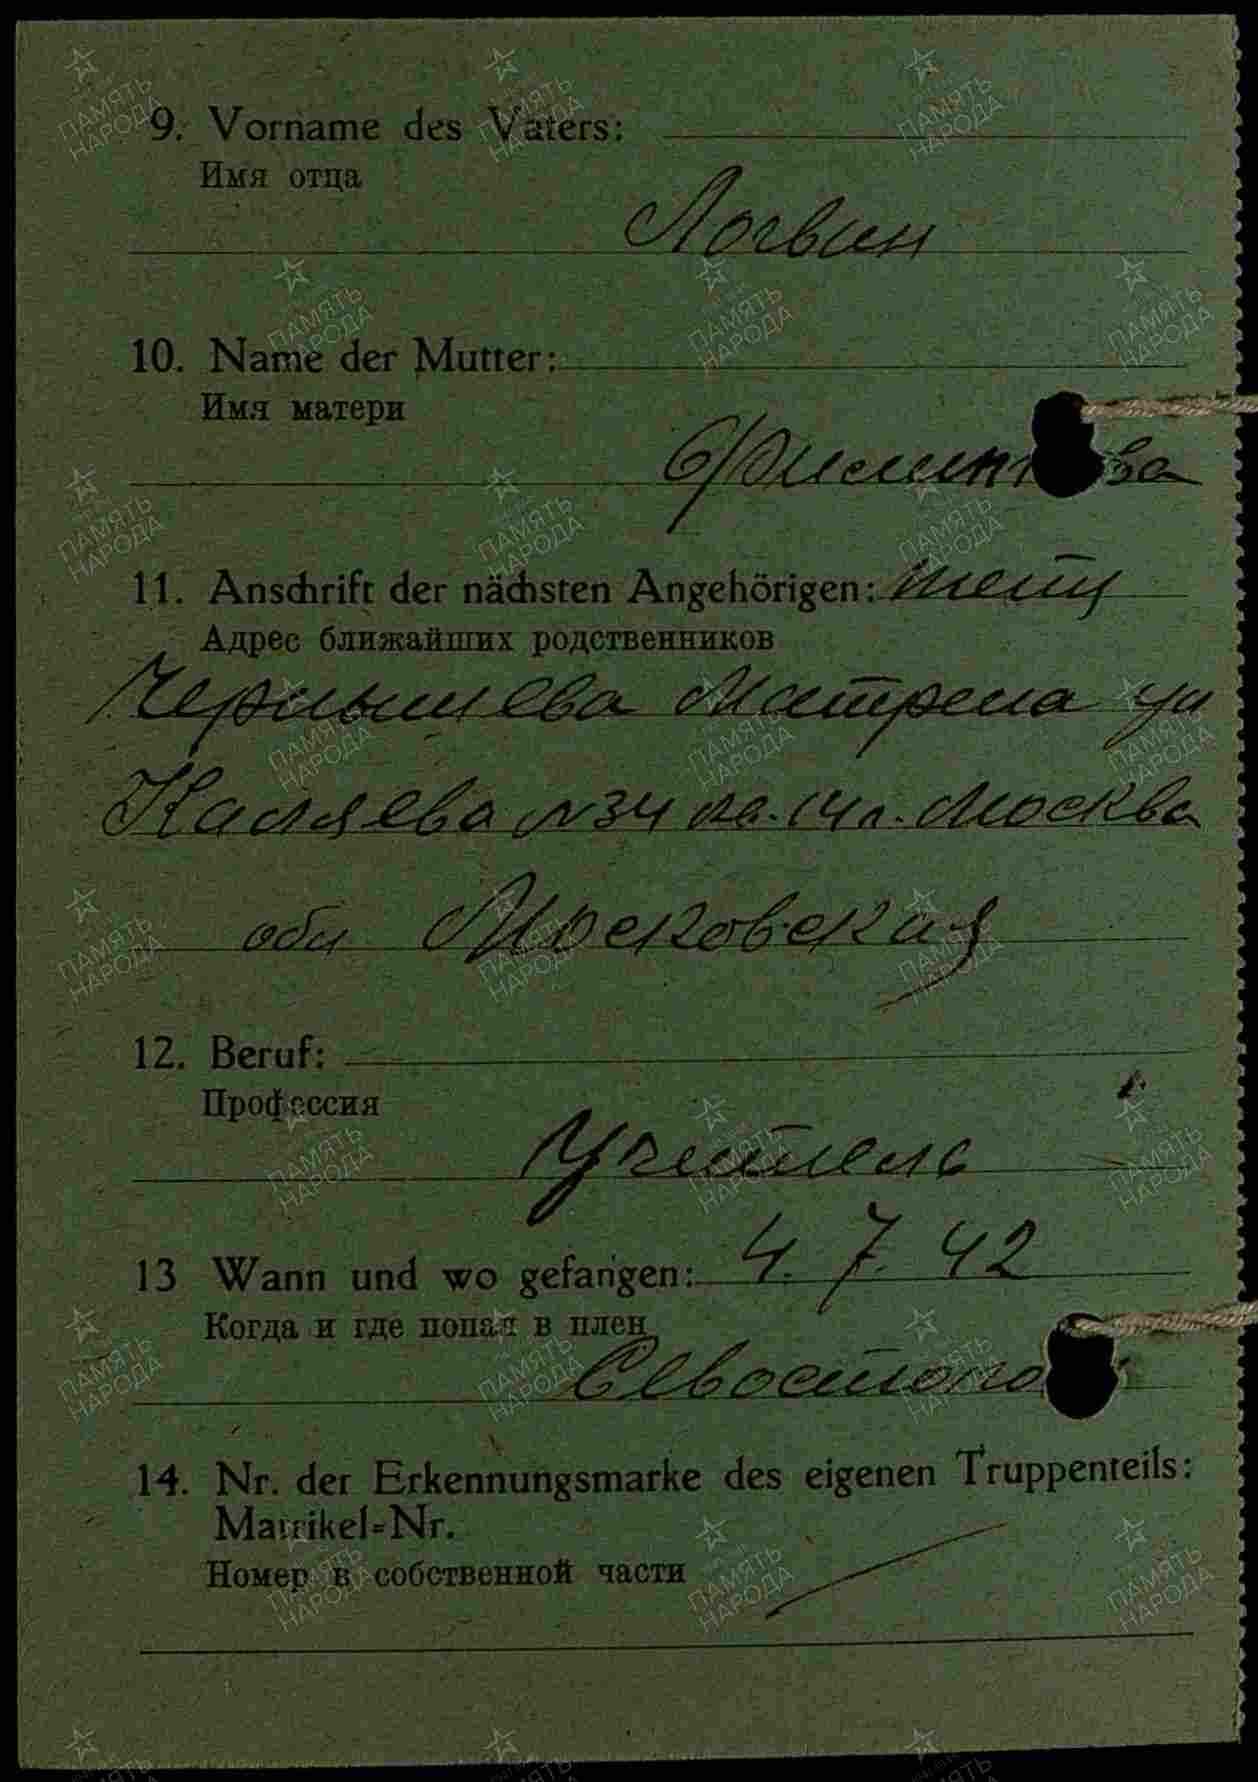 9. Vorname des Vaters:
Имя отца
Логвин
10. Name der Mutter:
Имя матери
11. Anschrift der nächsten Angehörigen:
Адрес ближайших родственников
Чернышева Матрена ул
Каляева №34 кв. 14 г. Москва
обл Московская
12. Beruf:
Профессия
Учитель
13 Wann und wo gefangen: 4. 7. 42
Когда и где попал в плен
Севостопо
14. Nr. der Erkennungsmarke des eigenen Truppenteils:
Matrikel=Nr.
Номер в собственной части
ПАМЯТЬ НАРОДА